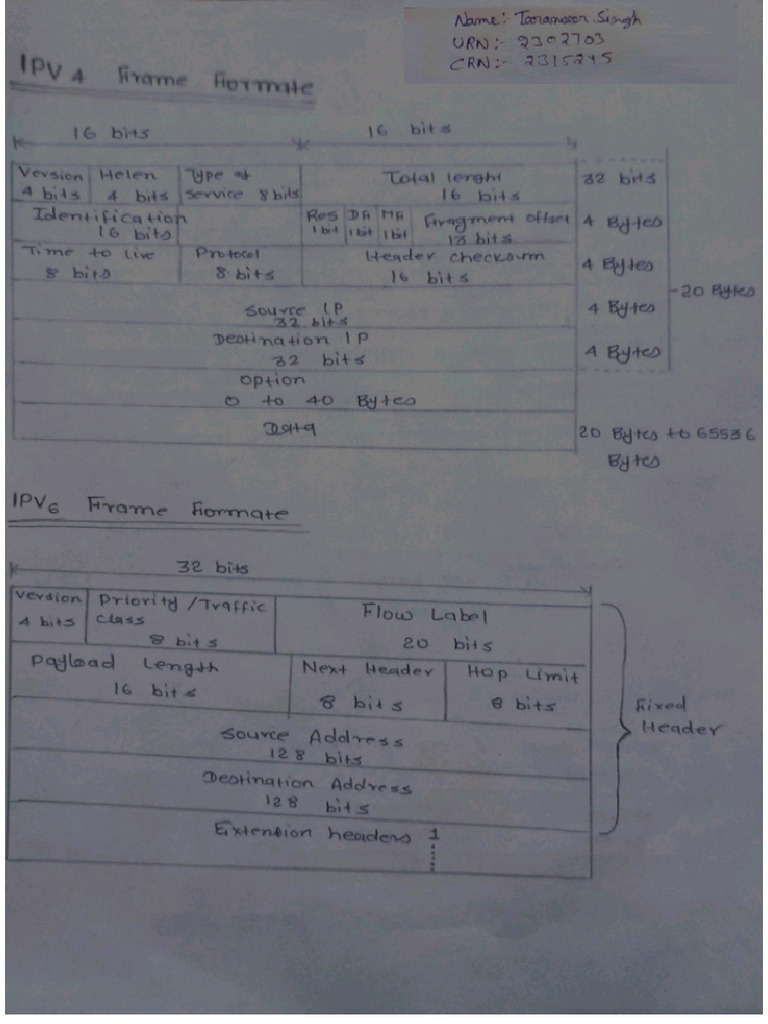 Name:- Taranveer Singh
URN:- 2302703
CRN:- 2315245
IPV4 Frame Formate
16 bits 16 bits
Version Helen Type of Total lenght 32 bits
4 bits 4 bits Service 8 bits 16 bits
Identification Res DF MF Fragment offset 4 Bytes
16 bits 1 bit 1 bit 1 bit 13 bits
Time to Live Protocol Header checksum 4 Bytes
8 bits 8 bits 16 bits
20 Bytes
Source IP 4 Bytes
32 bits
Destination IP 4 Bytes
32 bits
Option
0 to 40 Bytes
Data 20 Bytes to 65536
Bytes
IPV6 Frame Formate
32 bits
Version Priority/Traffic Flow Label
4 bits class
8 bits 20 bits
Payload Length Next Header Hop Limit
16 bits 8 bits 8 bits
Fixed
Header
Source Address
128 bits
Destination Address
128 bits
Extension headers 1